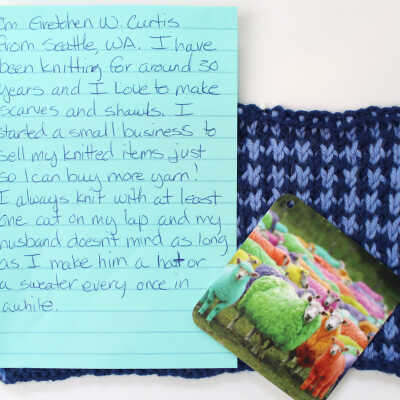 I'm Gretchen W. Curtis
from Seattle, WA. I have
been knitting for around 30
years and I Love to make
scarves and shawls. I
started a small business to
sell my knitted items just
so I can buy more yarn!
I always knit with at least
one cat on my lap and my
husband doesn't mind as long
as I make him a hat or
a sweater every once in
awhile.